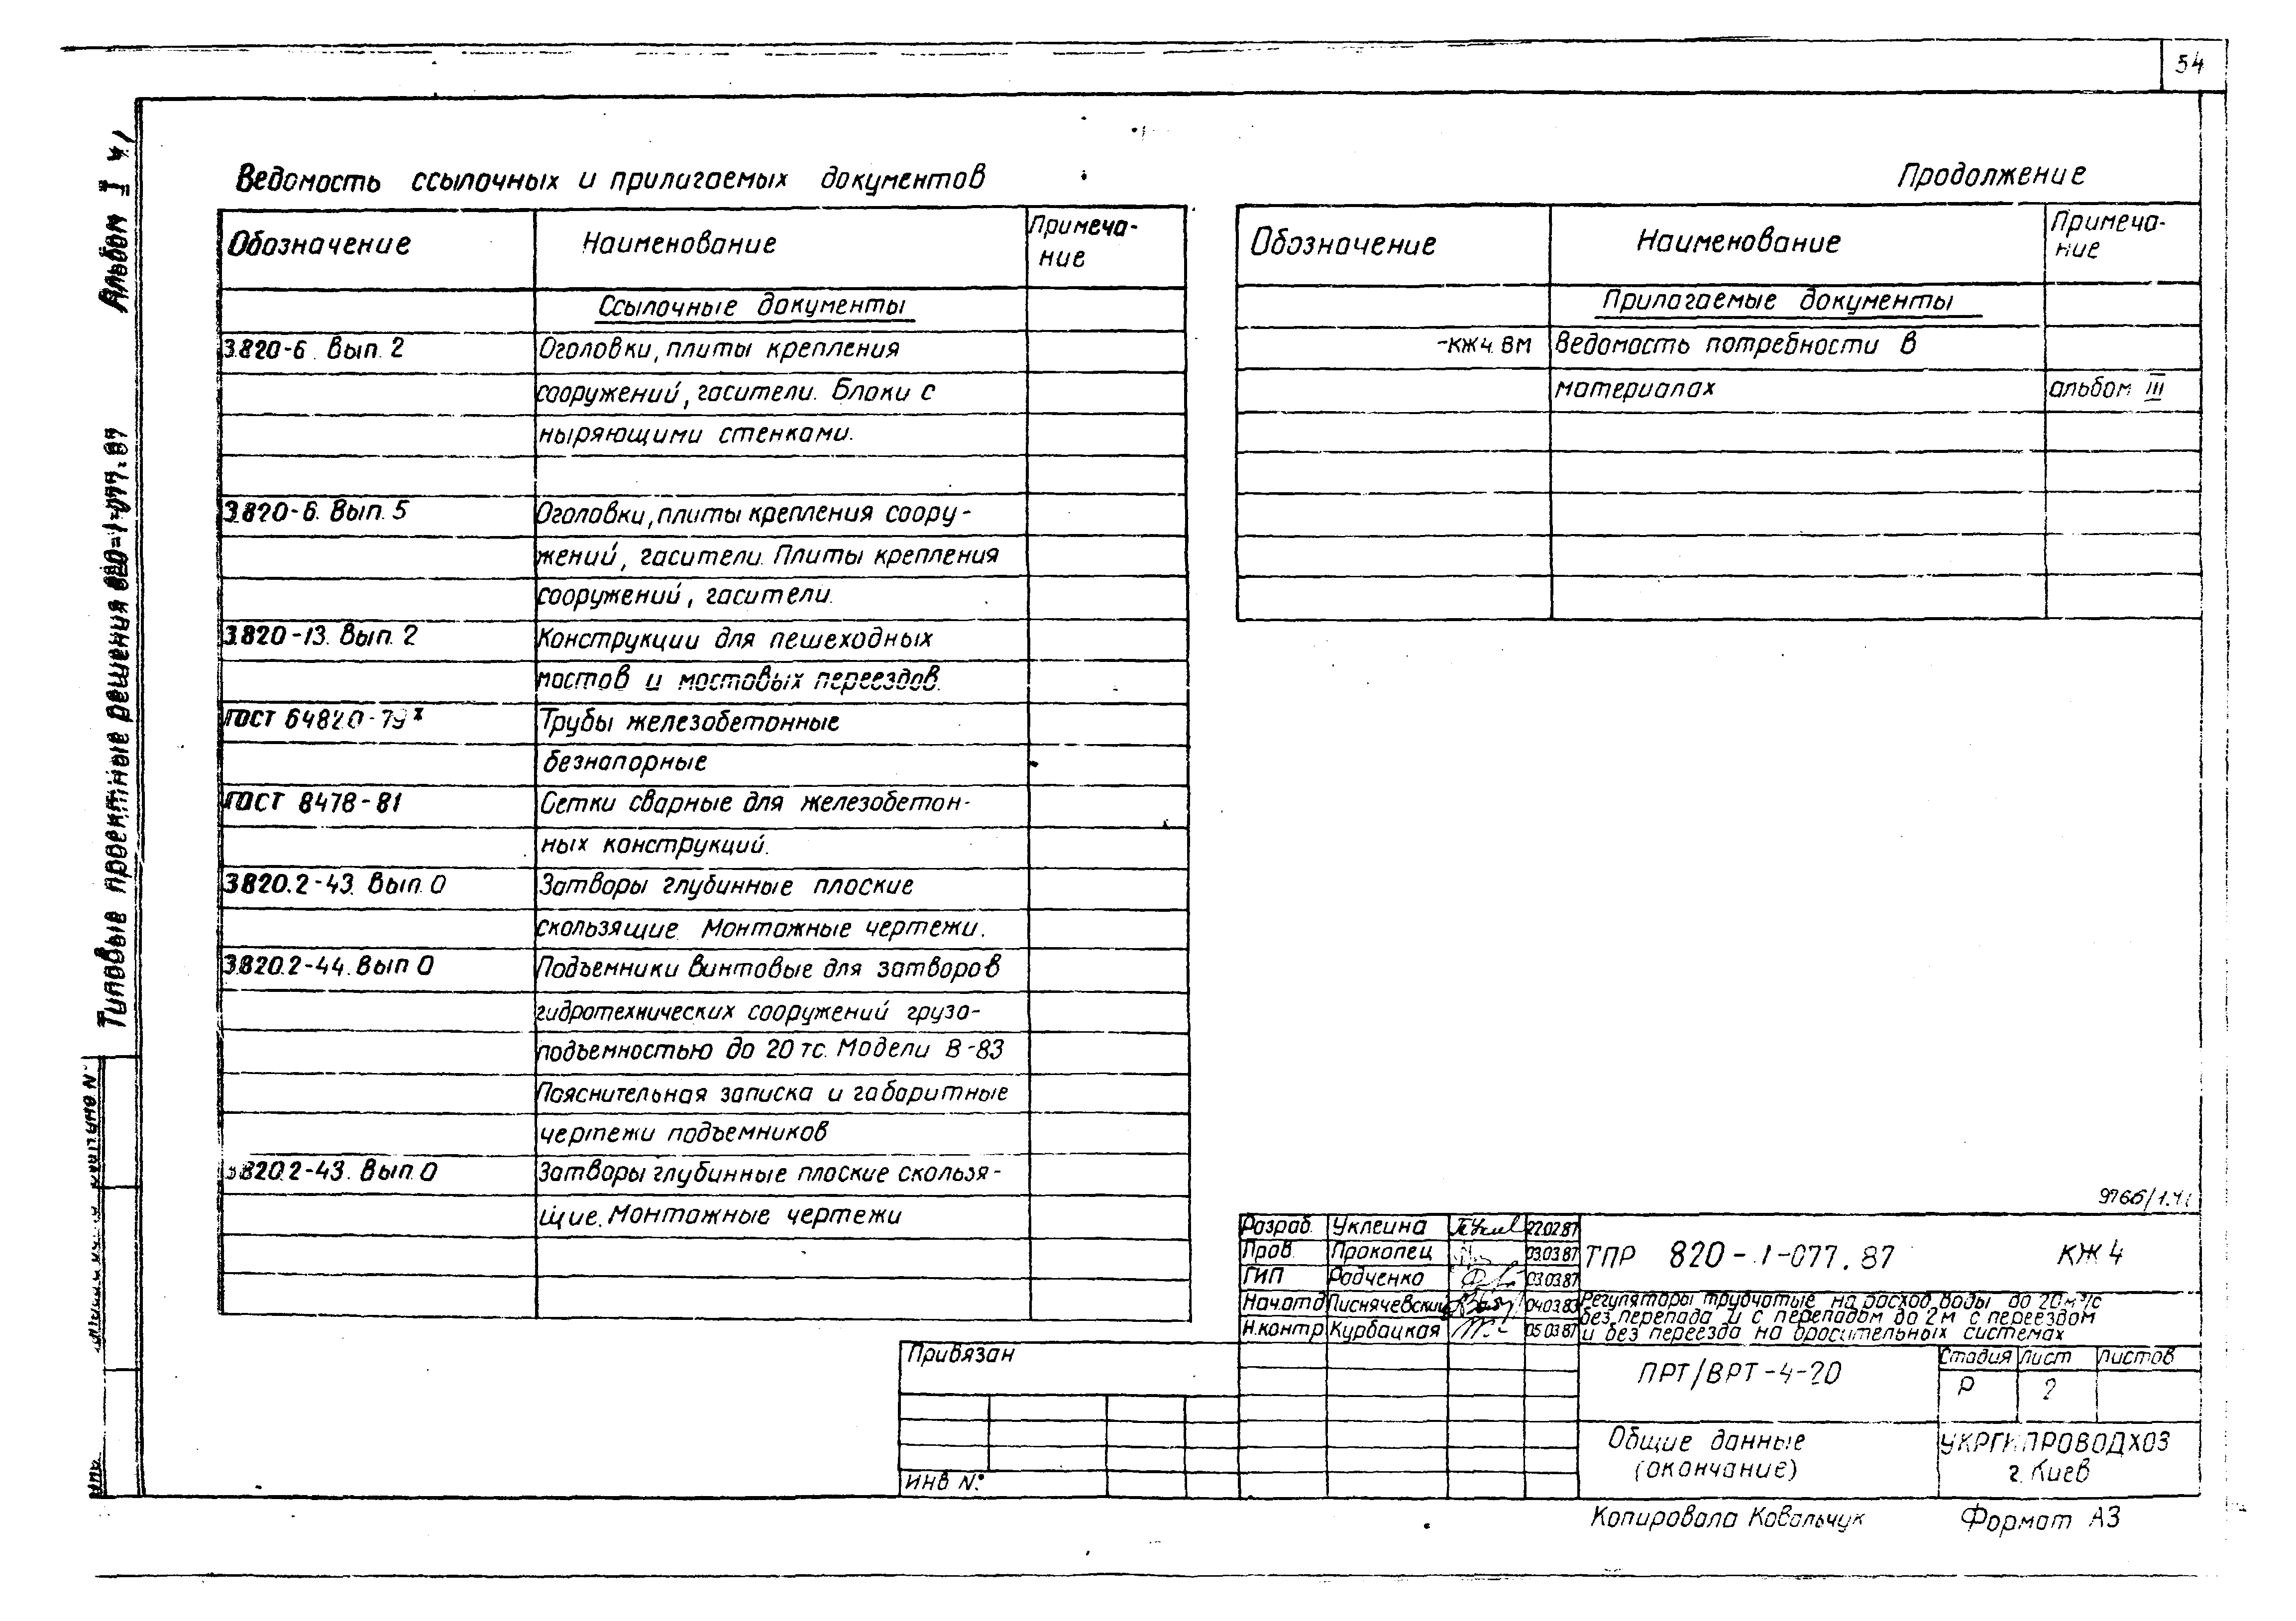 54
Альбом I ч.1
Типовые проектные решения 820-1-077.87
Ведомость ссылочных и прилагаемых документов
Обозначение Наименование Примеча-
ние
Ссылочные документы
3.820-6. Вып. 2 Оголовки, плиты крепления
сооружений, гасители. Блоки с
ныряющими стенками.
3.820-6. Вып. 5 Оголовки, плиты крепления соору-
жений, гасители. Плиты крепления
сооружений, гасители.
3.820-13. Вып. 2 Конструкции для пешеходных
мостов и мостовых переездов.
ГОСТ 64820-79ˣ Трубы железобетонные
безнапорные
ГОСТ 8478-81 Сетки сварные для железобетон-
ных конструкций.
3.820.2-43. Вып. 0 Затворы глубинные плоские
скользящие. Монтажные чертежи.
3.820.2-44. Вып 0 Подъемники винтовые для затворов
гидротехнических сооружений грузо-
подъемностью до 20 тс. Модели В-83
Пояснительная записка и габаритные
чертежи подъемников
3.820.2-43. Вып. 0 Затворы глубинные плоские скользя-
щие. Монтажные чертежи
Продолжение
Обозначение Наименование Примеча-
ние
Прилагаемые документы
-КЖ4.ВМ Ведомость потребности в
материалах альбом III
9766/1.ч.1
Разраб. Уклеина 22.02.87
Пров. Прокопец 03.03.87
ГИП Радченко 03.03.87
Нач.отд Писнячевский 04.03.83
Н.контр Курбацкая 05.03.87
ТПР 820-1-077.87 КЖ4
Регуляторы трубчатые на расход воды до 20 м³/с
без перепада и с перепадом до 2м с переездом
и без переезда на оросительных системах
Привязан
ИНВ №
ПРТ/ВРТ-4-20
Стадия Лист Листов
Р 2
Общие данные
(окончание)
УКРГИПРОВОДХОЗ
г. Киев
Копировала Ковальчук Формат А3